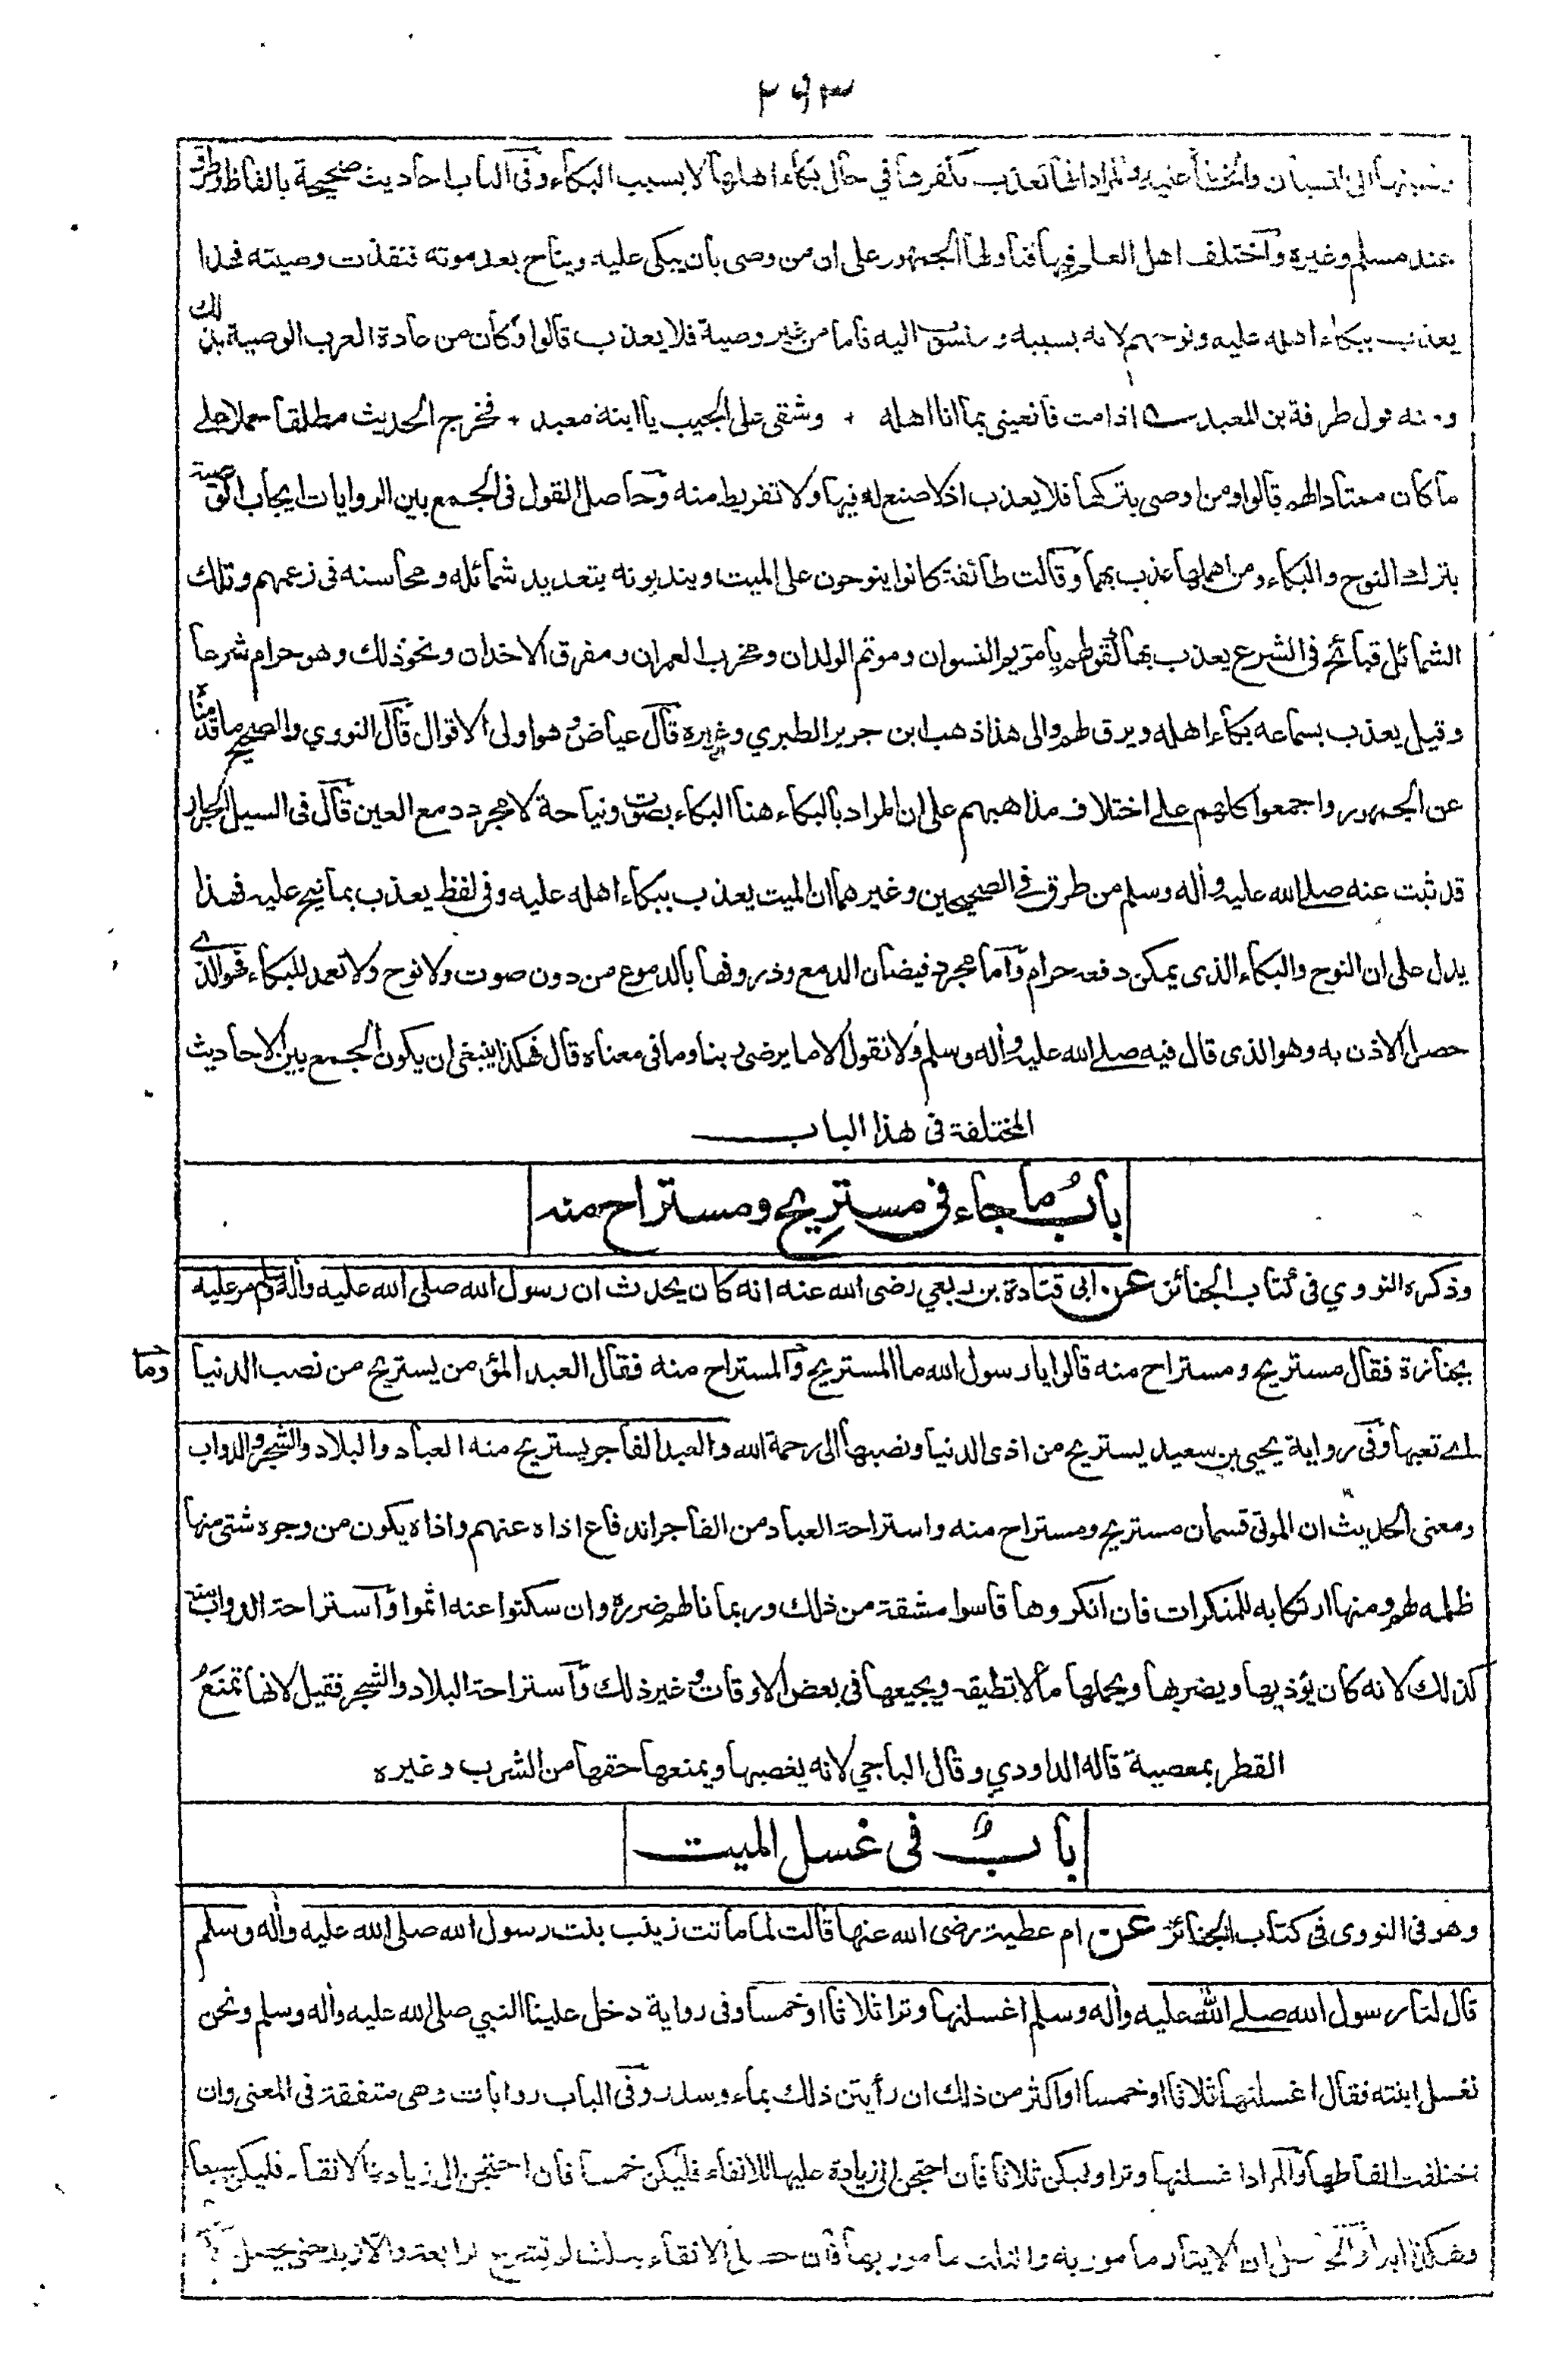 ٢٩٣
ونسبتها الى النسيان والخطأ عليه والمراد انها تعذب بكفرها في حال بكاء اهلها لا بسبب البكاء وفي الباب احاديث صحيحة بالفاظ وطرق
عند مسلم وغيره واختلف اهل العلم فيها فتأولها الجمهور على ان من وصى بان يبكى عليه ويناح بعد موته فنفذت وصيته فهذا
يعذب ببكاء اهله عليه ونوحهم لانه بسببه ومنسوب اليه فاما من غير وصية فلا يعذب قالوا وكان من عادة العرب الوصية بذلك
ومنه قول طرفة بن المعبد اذا مت فانعيني بما انا اهله + وشقي على الجيب يا ابنة معبد + فخرج الحديث مطلقا حملا على
ما كان معتادا لهم قالوا ومن اوصى بتركها فلا يعذب اذ لا صنع له فيها ولا تفريط منه وحاصل القول في الجمع بين الروايات ايجاب الوصية
بترك النوح والبكاء ومن اهملها عذب بهما وقالت طائفة كانوا ينوحون على الميت ويندبونه بتعديد شمائله ومحاسنه في زعمهم وتلك
الشمائل قبائح في الشرع يعذب بها كقولهم يا مؤيم النسوان وموتم الولدان ومخرب العمران ومفرق الاخدان ونحو ذلك وهو حرام شرعا
وقيل يعذب بسماعه بكاء اهله ويرق لهم والى هذا ذهب ابن جرير الطبري وغيره قال عياض وهو اولى الاقوال قال النووي والصحيح ما قدمناه
عن الجمهور واجمعوا كلهم على اختلاف مذاهبهم على ان المراد بالبكاء هنا البكاء بصوت ونياحة لا مجرد دمع العين قال في السيل الجرار
قد ثبت عنه صلى الله عليه واله وسلم من طرق في الصحيحين وغيرهما ان الميت يعذب ببكاء اهله عليه وفي لفظ يعذب بما نيح عليه فهذا
يدل على ان النوح والبكاء الذي يمكن دفعه حرام واما مجرد فيضان الدمع وذروفها بالدموع من دون صوت ولا نوح ولا تعمد للبكاء فهو الذي
حصل الاذن به وهو الذي قال فيه صلى الله عليه واله وسلم ولا نقول الا ما يرضى ربنا وما في معناه قال فهكذا ينبغي ان يكون الجمع بين الاحاديث
المختلفة في هذا الباب
باب ما جاء في مستريح ومستراح منه
وذكره النووي في كتاب الجنائز عن ابي قتادة بن ربعي رضى الله عنه انه كان يحدث ان رسول الله صلى الله عليه واله وسلم مر عليه
بجنازة فقال مستريح ومستراح منه قالوا يا رسول الله ما المستريح وما المستراح منه فقال العبد المؤمن يستريح من نصب الدنيا
اے تعبها وفي رواية يحيى بن سعيد يستريح من اذى الدنيا ونصبها الى رحمة الله والعبد الفاجر يستريح منه العباد والبلاد والشجر والدواب
ومعنى الحديث ان الموتى قسمان مستريح ومستراح منه واستراحة العباد من الفاجر اندفاع اذاه عنهم واذاه يكون من وجوه شتى منها
ظلمه لهم ومنها ارتكابه للمنكرات فان انكروها قاسوا مشقة من ذلك وربما نالهم ضرره وان سكتوا عنه اثموا واستراحة الدواب منه
كذلك لانه كان يؤذيها ويضربها ويحملها ما لا تطيقه ويجيعها في بعض الاوقات وغير ذلك واستراحة البلاد والشجر فقيل لانها تمنع
القطر بمعصية قاله الداودي وقال الباجي لانه يغصبها ويمنعها حقها من الشرب وغيره
باب في غسل الميت
وهو في النووي في كتاب الجنائز عن ام عطية رضى الله عنها قالت لما ماتت زينب بنت رسول الله صلى الله عليه واله وسلم
قال لنا رسول الله صلى الله عليه واله وسلم اغسلنها وترا ثلاثا او خمسا وفي رواية دخل علينا النبي صلى الله عليه واله وسلم ونحن
نغسل ابنته فقال اغسلنها ثلاثا او خمسا او اكثر من ذلك ان رأيتن ذلك بماء وسدر وفي الباب روايات وهى متفقة في المعنى وان
اختلفت الفاظها والمراد اغسلنها وترا وليكن ثلاثا فان احتجن الى زيادة عليها للانقاء فليكن خمسا فان احتجن الى زيادة الانقاء فليكن سبعا
وهكذا ابدا والحاصل ان الايتار مامور به والثلاث مامور بها فان حصل الانقاء بثلاث لم تشرع الرابعة والا زيد حتى يحصل